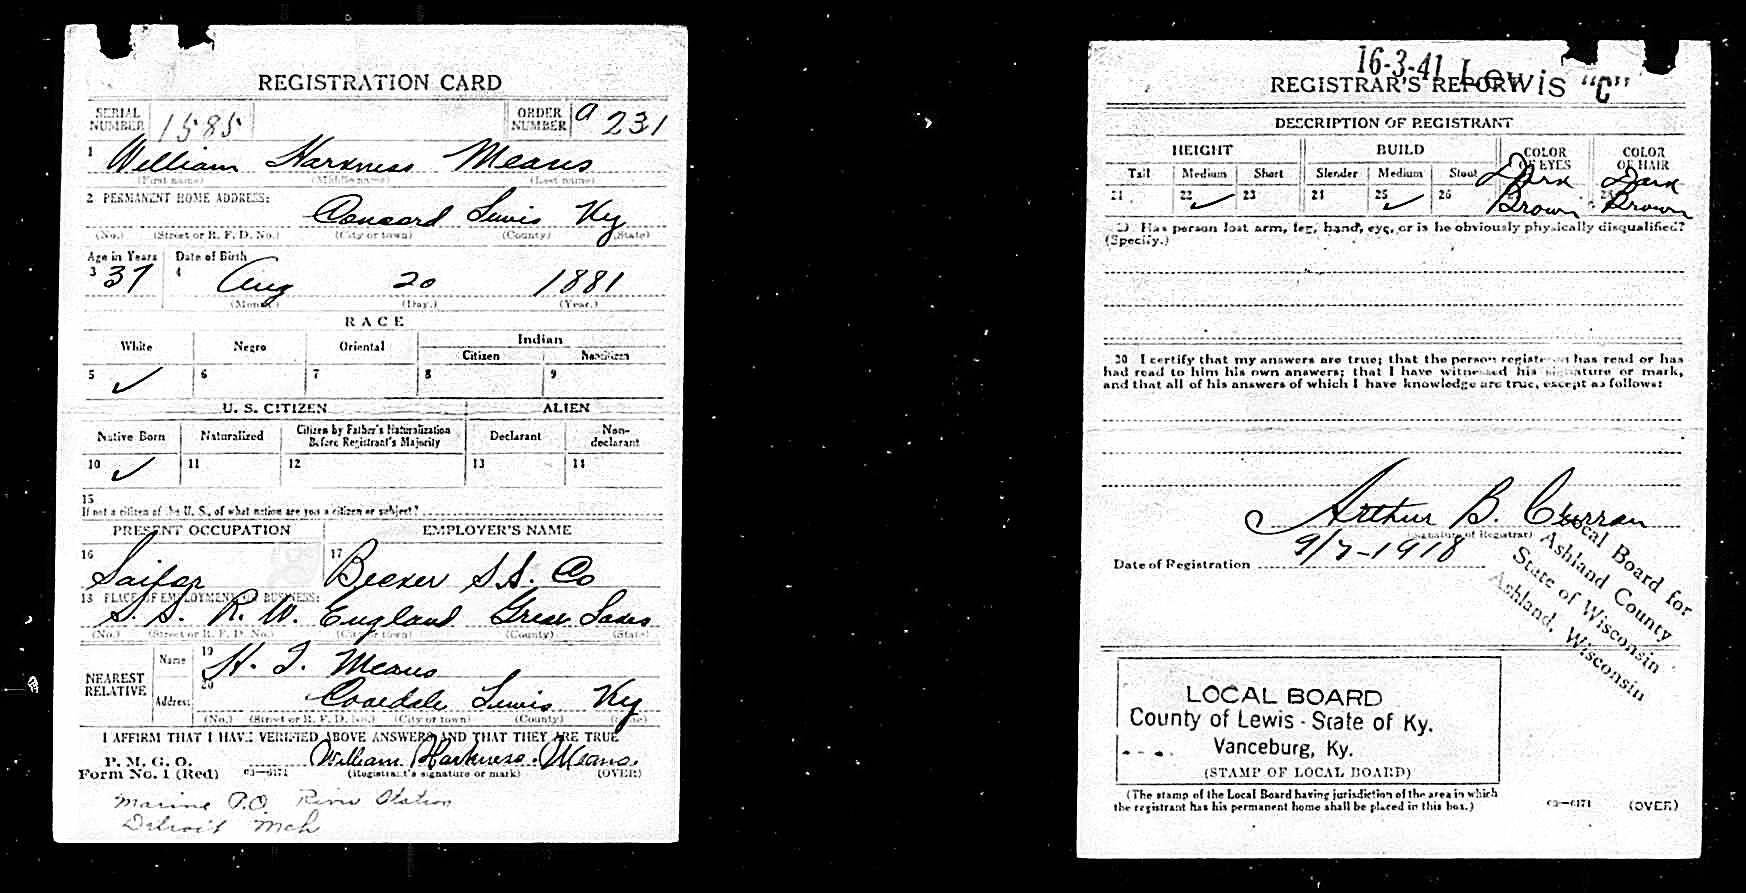 REGISTRATION CARD
SERIAL NUMBER 1585 ORDER NUMBER a 231
1 William Harkness Means
(First name) (Middle name) (Last name)
2 PERMANENT HOME ADDRESS:
Concord Lewis Ky
(No.) (Street or R. F. D. No.) (City or town) (County) (State)
Age in Years Date of Birth
3 37 4 Aug 20 1881
(Month.) (Day.) (Year.)
RACE
White Negro Oriental Indian
Citizen Noncitizen
5 ✓ 6 7 8 9
U. S. CITIZEN ALIEN
Native Born Naturalized Citizen by Father's Naturalization Before Registrant's Majority Declarant Non-declarant
10 ✓ 11 12 13 14
15
If not a citizen of the U. S., of what nation are you a citizen or subject?
PRESENT OCCUPATION EMPLOYER'S NAME
16 Sailor 17 Becker S.S. Co
18 PLACE OF EMPLOYMENT OR BUSINESS:
S. S. R. W. England Great Lakes
(No.) (Street or R. F. D. No.) (City or town) (County) (State)
NEAREST RELATIVE Name 19 H. T. Means
Address 20 Lewis Ky
(No.) (Street or R. F. D. No.) (City or town) (County) (State)
I AFFIRM THAT I HAVE VERIFIED ABOVE ANSWERS AND THAT THEY ARE TRUE
P. M. G. O.
Form No. 1 (Red) 03—6171 William Harkness Means.
(Registrant's signature or mark) (OVER)
Marine P.O. River Station
Detroit Mch
16-3-41 Lewis "C"
REGISTRAR'S REPORT
DESCRIPTION OF REGISTRANT
HEIGHT BUILD COLOR OF EYES COLOR OF HAIR
Tall Medium Short Slender Medium Stout
21 22 ✓ 23 24 25 ✓ 26 Dark Brown Dark Brown
29 Has person lost arm, leg, hand, eye, or is he obviously physically disqualified?
(Specify.)
30 I certify that my answers are true; that the person registered has read or has
had read to him his own answers; that I have witnessed his signature or mark,
and that all of his answers of which I have knowledge are true, except as follows:
Arthur B. Curran
(Signature of Registrar)
Date of Registration 9/7-1918
Local Board for
Ashland County
State of Wisconsin
Ashland, Wisconsin
LOCAL BOARD
County of Lewis - State of Ky.
Vanceburg, Ky.
(STAMP OF LOCAL BOARD)
(The stamp of the Local Board having jurisdiction of the area in which
the registrant has his permanent home shall be placed in this box.)
03—6171 (OVER)